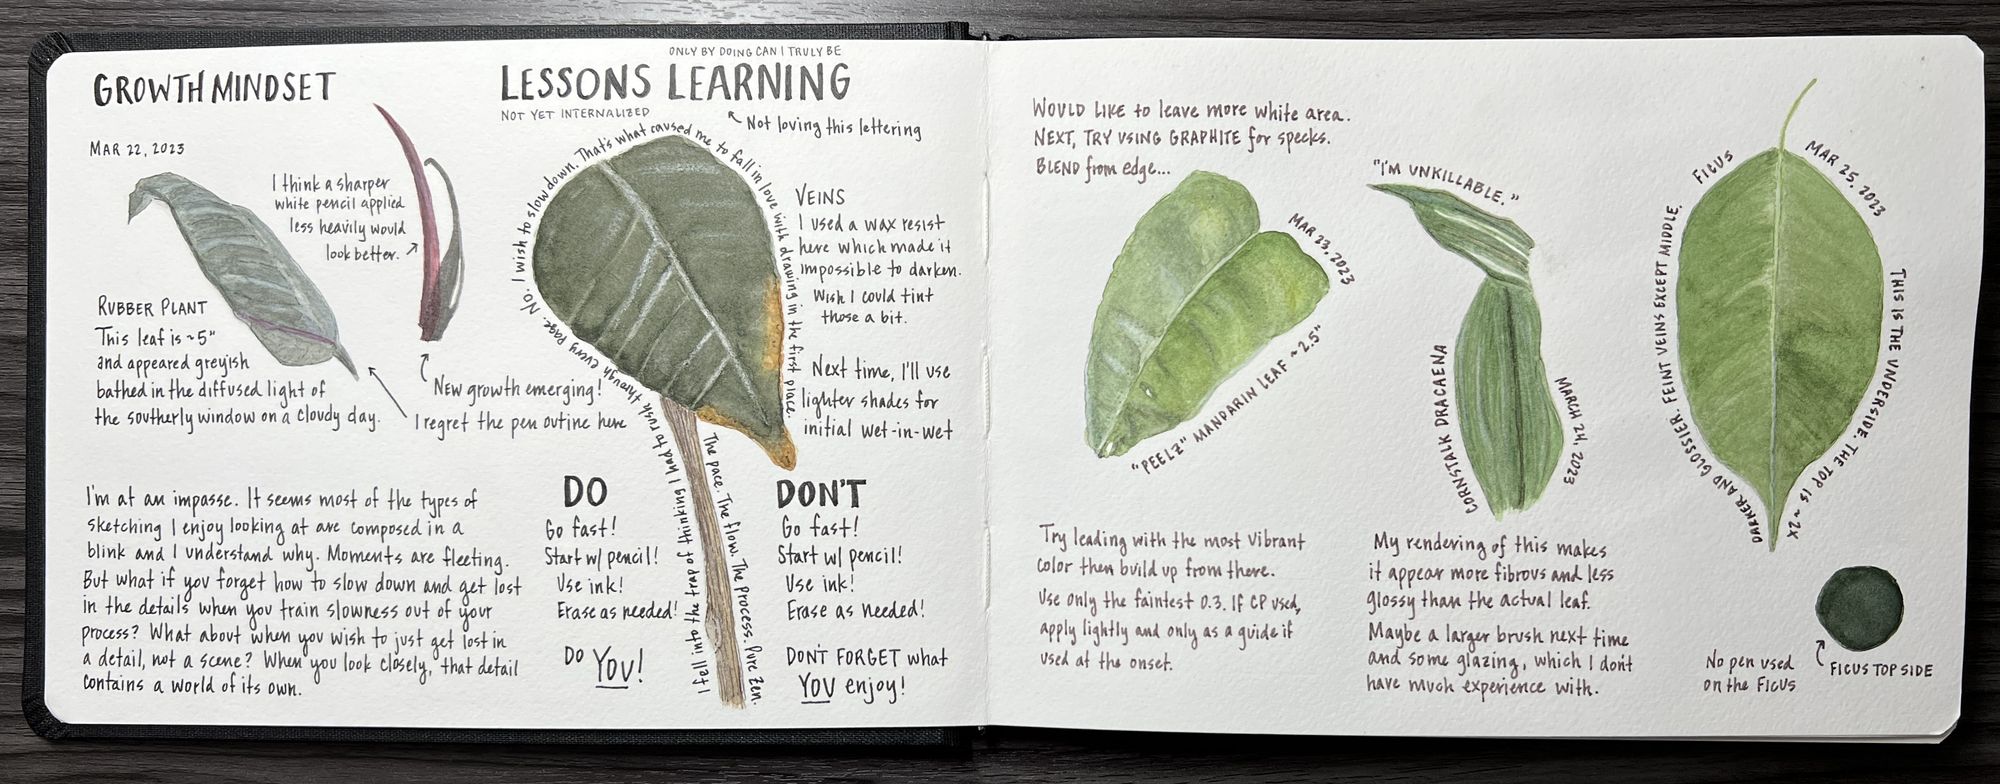 GROWTH MINDSET
MAR 22, 2023
ONLY BY DOING CAN I TRULY BE
LESSONS LEARNING
NOT YET INTERNALIZED
Not loving this lettering
I think a sharper
white pencil applied
less heavily would
look better.
RUBBER PLANT
This leaf is ~5"
and appeared greyish
bathed in the diffused light of
the southerly window on a cloudy day.
New growth emerging!
I regret the pen outine here
I fell into the trap of thinking I had to rush through every page. No. I wish to slow down. That's what caused me to fall in love with drawing in the first place.
The pace. The flow. The process. Pure Zen.
VEINS
I used a wax resist
here which made it
impossible to darken.
Wish I could tint
those a bit.
Next time, I'll use
lighter shades for
initial wet-in-wet
I'm at an impasse. It seems most of the types of
sketching I enjoy looking at are composed in a
blink and I understand why. Moments are fleeting.
But what if you forget how to slow down and get lost
in the details when you train slowness out of your
process? What about when you wish to just get lost in
a detail, not a scene? When you look closely, that detail
contains a world of its own.
DO
Go fast!
Start w/ pencil!
Use ink!
Erase as needed!
Do YOU!
DON'T
Go fast!
Start w/ pencil!
Use ink!
Erase as needed!
DON'T FORGET what
YOU enjoy!
WOULD LIKE to leave more white area.
NEXT, TRY USING GRAPHITE for specks.
BLEND from edge...
MAR 23, 2023
"PEELZ" MANDARIN LEAF ~2.5"
Try leading with the most vibrant
color then build up from there.
Use only the faintest 0.3. IF CP used,
apply lightly and only as a guide if
used at the onset.
"I'M UNKILLABLE."
CORNSTALK DRACAENA
MARCH 24, 2023
My rendering of this makes
it appear more fibrous and less
glossy than the actual leaf.
Maybe a larger brush next time
and some glazing, which I don't
have much experience with.
FICUS
MAR 25, 2023
THIS IS THE UNDERSIDE. THE TOP IS ~2X
DARKER AND GLOSSIER. FEINT VEINS EXCEPT MIDDLE.
No pen used
on the FICUS
FICUS TOP SIDE